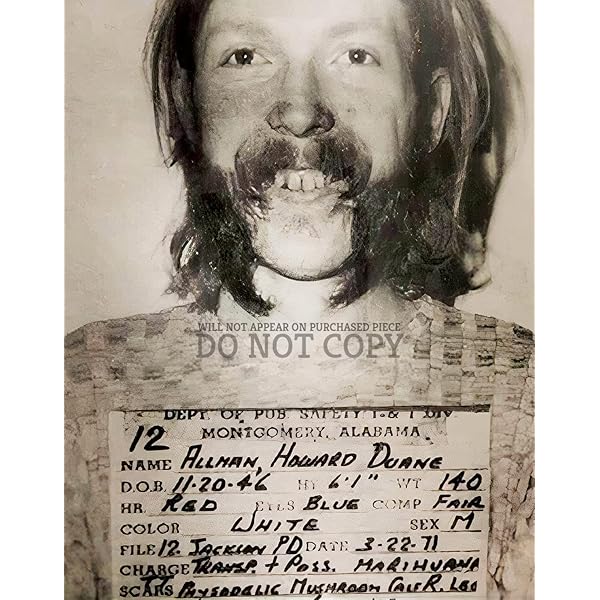 WILL NOT APPEAR ON PURCHASED PIECE
DO NOT COPY
DEPT. OF PUB. SAFETY I. & I. DIV
12 MONTGOMERY, ALABAMA
NAME ALLMAN, HOWARD DUANE
D.O.B. 11-20-46 HT 6'1" WT 140
HR RED EYES BLUE COMP FAIR
COLOR WHITE SEX M
FILE 12. JACKSON PD DATE 3-22-71
CHARGE TRANSP. + POSS. MARIHUANA
SCARS TT PHYSODELIC MUSHROOM CALF R. LEG